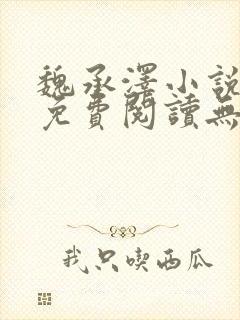 魏承澤小說
免費閱讀無
我只喫西瓜